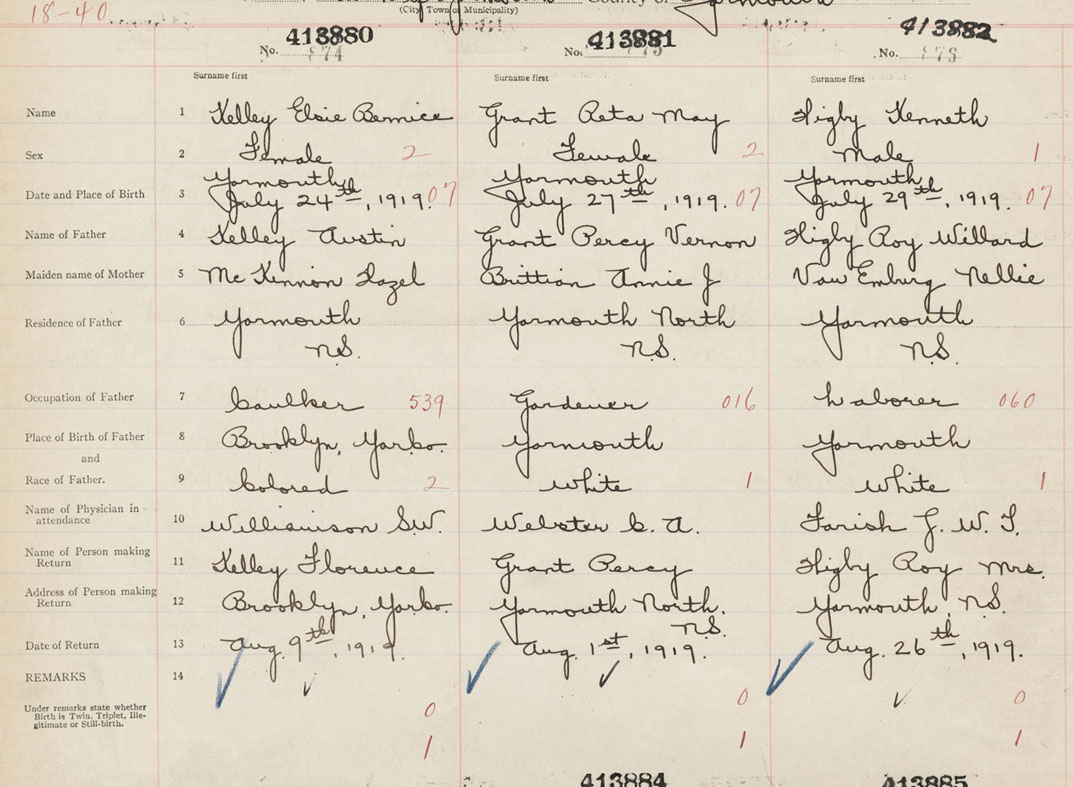 18-40.
County of Yarmouth
(City, Town or Municipality)
413880 413881 413882
No. 874 No. No.
Surname first Surname first Surname first
Name 1 Kelley Elsie Bernice Grant Reta May Higby Kenneth
Sex 2 Female 2 Female 2 Male 1
Yarmouth Yarmouth Yarmouth
Date and Place of Birth 3 July 24th, 1919. 07 July 27th, 1919. 07 July 29th, 1919. 07
Name of Father 4 Kelley Austin Grant Percy Vernon Higby Roy Willard
Maiden name of Mother 5 Mc Kinnon Hazel Brittian Annie J Van Emburg Nellie
Residence of Father 6 Yarmouth Yarmouth North Yarmouth
N.S. N.S. N.S.
Occupation of Father 7 Caulker 539 Gardener 016 Laborer 060
Place of Birth of Father 8 Brooklyn, Yar Co. Yarmouth Yarmouth
and
Race of Father. 9 Colored 2 White 1 White 1
Name of Physician in attendance 10 Williamson S.W. Webster C. A. Farish J. W. T.
Name of Person making Return 11 Kelley Florence Grant Percy Higby Roy Mrs.
Address of Person making Return 12 Brooklyn, Yar Co. Yarmouth North. Yarmouth, N.S.
N.S.
Date of Return 13 Aug. 9th, 1919. Aug. 1st, 1919. Aug. 26th, 1919.
REMARKS 14
Under remarks state whether
Birth is Twin, Triplet, Ille-
gitimate or Still-birth.
0 0 0
1 1 1
413884 413885